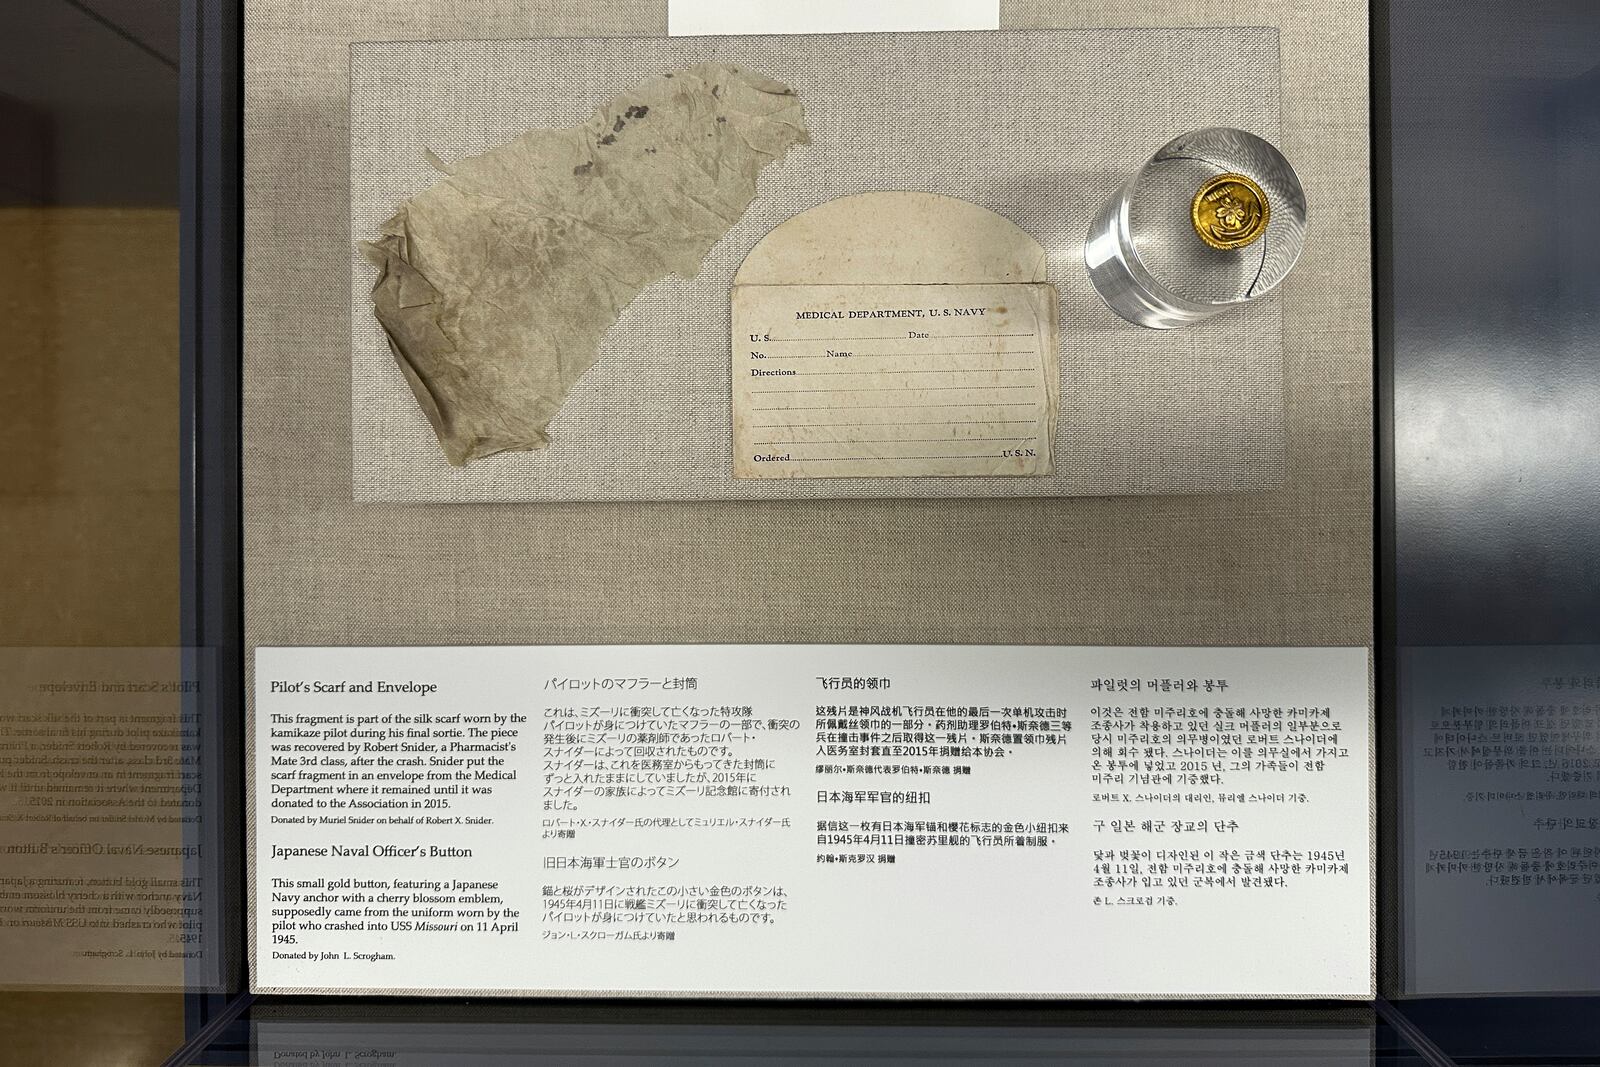 MEDICAL DEPARTMENT, U. S. NAVY
U. S. Date
No. Name
Directions
Ordered U. S. N.
Pilot's Scarf and Envelope
This fragment is part of the silk scarf worn by the
kamikaze pilot during his final sortie. The piece
was recovered by Robert Snider, a Pharmacist's
Mate 3rd class, after the crash. Snider put the
scarf fragment in an envelope from the Medical
Department where it remained until it was
donated to the Association in 2015.
Donated by Muriel Snider on behalf of Robert X. Snider.
Japanese Naval Officer's Button
This small gold button, featuring a Japanese
Navy anchor with a cherry blossom emblem,
supposedly came from the uniform worn by the
pilot who crashed into USS Missouri on 11 April
1945.
Donated by John L. Scrogham.
パイロットのマフラーと封筒
これは、ミズーリに衝突して亡くなった特攻隊
パイロットが身につけていたマフラーの一部で、衝突の
発生後にミズーリの薬剤師であったロバート・
スナイダーによって回収されたものです。
スナイダーは、これを医務室からもってきた封筒に
ずっと入れたままにしていましたが、2015年に
スナイダーの家族によってミズーリ記念館に寄付され
ました。
ロバート・X・スナイダー氏の代理としてミュリエル・スナイダー氏
より寄贈
旧日本海軍士官のボタン
錨と桜がデザインされたこの小さい金色のボタンは、
1945年4月11日に戦艦ミズーリに衝突して亡くなった
パイロットが身につけていたと思われるものです。
ジョン・L・スクローガム氏より寄贈
飞行员的领巾
这残片是神风战机飞行员在他的最后一次单机攻击时
所佩戴丝领巾的一部分。药剂助理罗伯特•斯奈德三等
兵在撞击事件之后取得这一残片。斯奈德置领巾残片
入医务室封套直至2015年捐赠给本协会。
缪丽尔•斯奈德代表罗伯特•斯奈德 捐赠
日本海军军官的纽扣
据信这一枚有日本海军锚和樱花标志的金色小纽扣来
自1945年4月11日撞密苏里舰的飞行员所着制服。
约翰•斯克罗汉 捐赠
파일럿의 머플러와 봉투
이것은 전함 미주리호에 충돌해 사망한 카미카제
조종사가 착용하고 있던 실크 머플러의 일부분으로
당시 미주리호의 의무병이었던 로버트 스나이더에
의해 회수 됐다. 스나이더는 이를 의무실에서 가지고
온 봉투에 넣었고 2015 년, 그의 가족들이 전함
미주리 기념관에 기증했다.
로버트 X. 스나이더의 대리인, 뮤리엘 스나이더 기증.
구 일본 해군 장교의 단추
닻과 벚꽃이 디자인된 이 작은 금색 단추는 1945년
4월 11일, 전함 미주리호에 충돌해 사망한 카미카제
조종사가 입고 있던 군복에서 발견됐다.
존 L. 스크로검 기증.